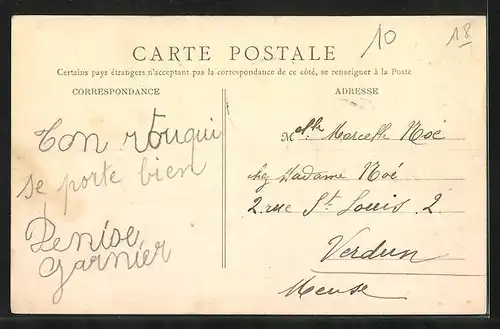 10
18
CARTE POSTALE
Certains pays étrangers n'acceptant pas la correspondance de ce côté, se renseigner à la Poste
CORRESPONDANCE
ADRESSE
Ton
se porte bien
Denise
Garnier
Melle Marcelle Noé
Madame Noé
2. rue St. Louis. 2
Verdun
Meuse